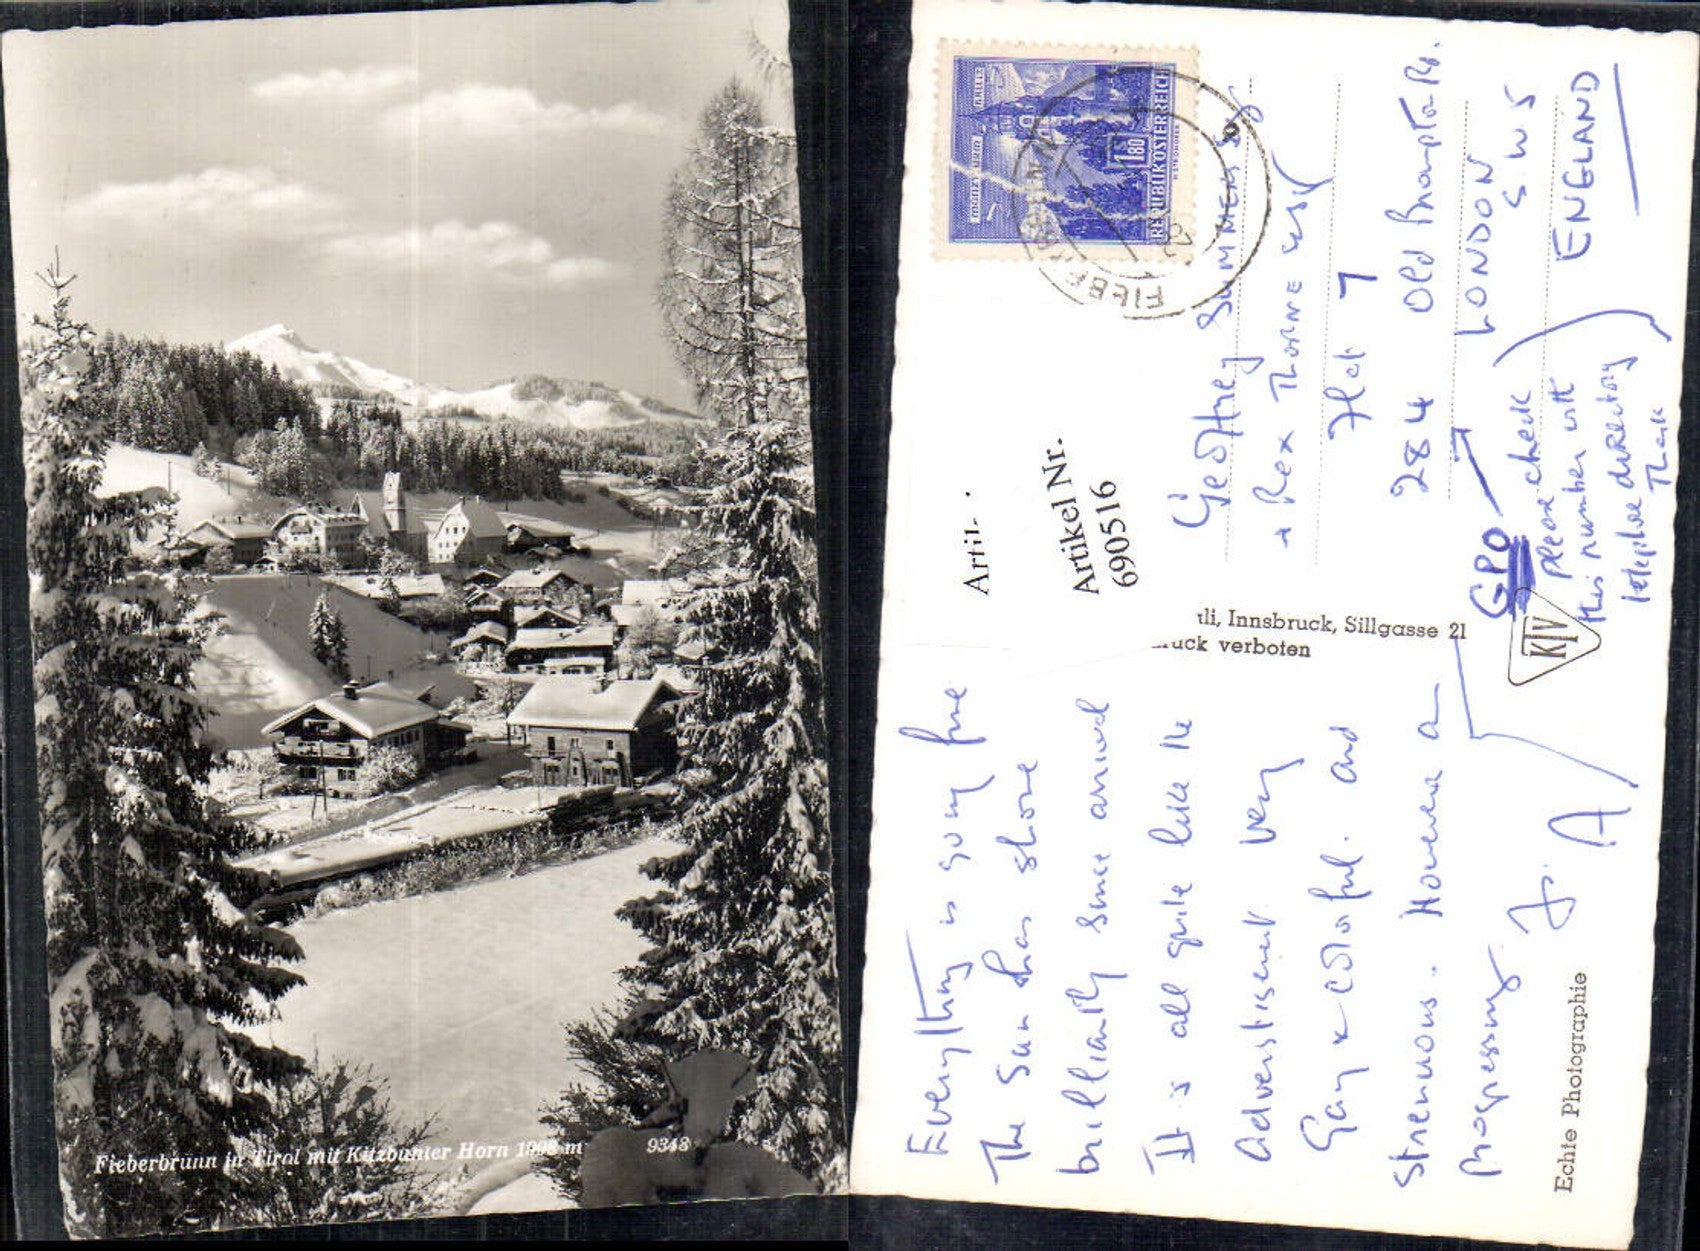 Fieberbrunn in Tirol mit Kitzbühler Horn 1998 m 9348
REPUBLIK ÖSTERREICH
1 S 1.80
FIEBERBRUNN
Artikel Nr.
690516
tli, Innsbruck, Sillgasse 21
ruck verboten
KTV
Echte Photographie
Geoffrey Summers
+ Rex Thorne
Flat 7
284 Old Brompton Rd.
LONDON
S W 5
ENGLAND
GPO
please check
this number with
telephone directory
Thank
Everything is going fine
The Sun has shone
brilliantly since arrival
It is all quite like the
advertisement very
Gay & colorful. and
strenuous. However a
progressing.